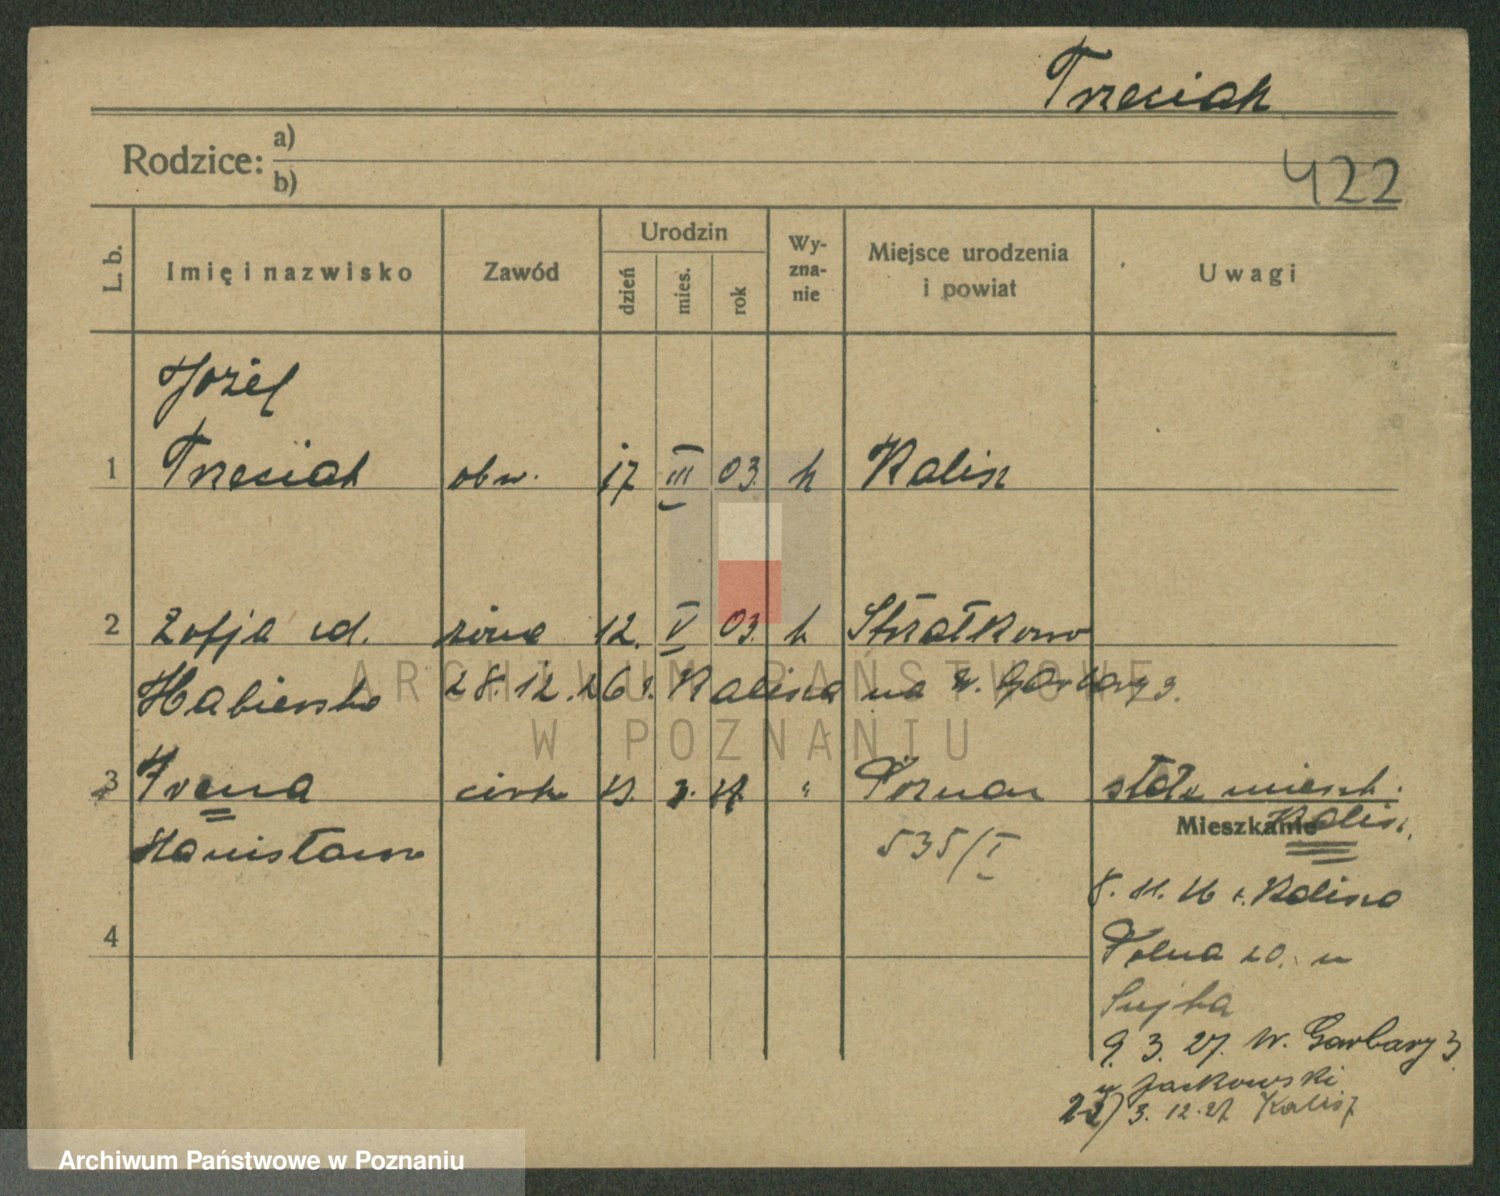 Trzeciak
Rodzice: a)
b)
422
L. b. Imię i nazwisko Zawód Urodzin dzień mies. rok Wy-zna-nie Miejsce urodzenia i powiat Uwagi
Józef
1 Trzeciak obw. 17 III 03. k Kalisz
2 Zofja żona 12. V 03. k Strzałkowo
28. 12. 26 z Kalisza na W. Garbary 3.
3 Irena córk 3. 27. " Poznań stałe mieszk.
Mieszkanie Kalisz.
Stanisława 535/I
8. 11. 26 z Kalisza
4 Polna 20. u
9. 3. 27. W. Garbary 3.
u Jackowski
22/3. 12. 27 Kalisz
ARCHIWUM PAŃSTWOWE
W POZNANIU
Archiwum Państwowe w Poznaniu